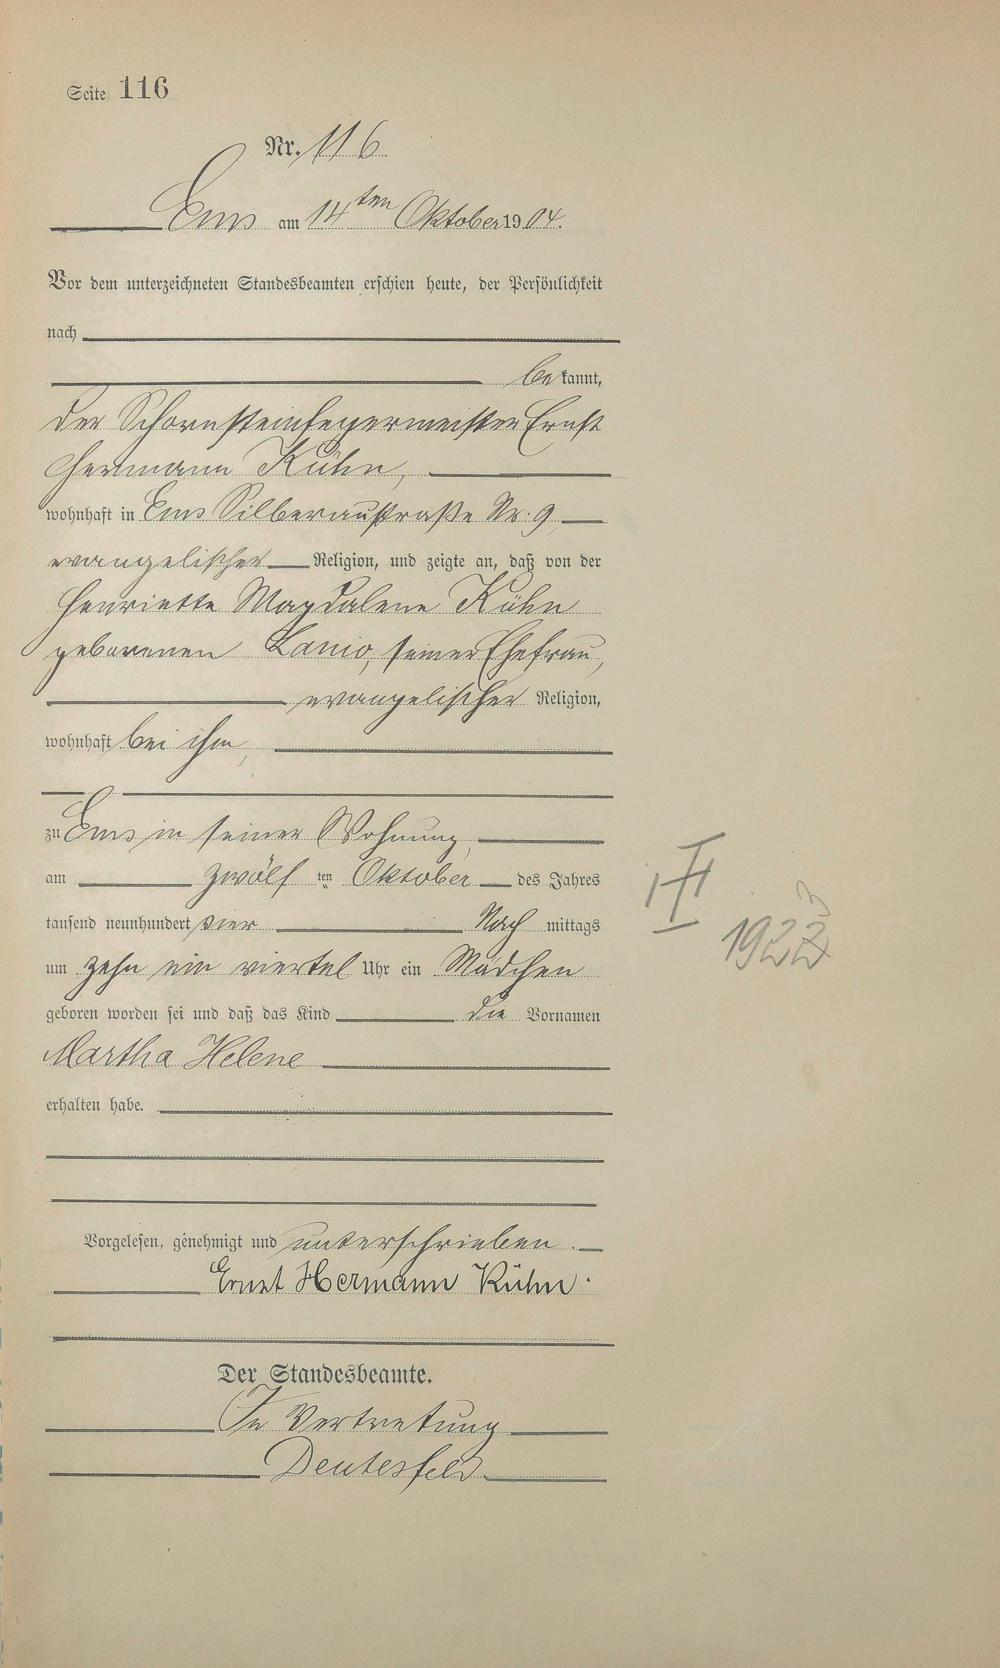 Seite 116
Nr. 116.
Ems am 14ten Oktober 1904.
Vor dem unterzeichneten Standesbeamten erschien heute, der Persönlichkeit
nach
bekannt,
der Schornsteinfegermeister Ernst
Hermann Kühn,
wohnhaft in Ems Silberaustraße Nr. 9
evangelischer Religion, und zeigte an, daß von der
Henriette Magdalene Kühn
geborenen Lanio, seiner Ehefrau,
evangelischer Religion,
wohnhaft bei ihm,
zu Ems in seiner Wohnung,
am zwölf ten Oktober des Jahres
tausend neunhundert vier Nach mittags
um zehn ein viertel Uhr ein Mädchen
geboren worden sei und daß das Kind die Vornamen
Martha Helene
erhalten habe.
Vorgelesen, genehmigt und unterschrieben.
Ernst Hermann Kühn.
Der Standesbeamte.
In Vertretung
Deutesfeld